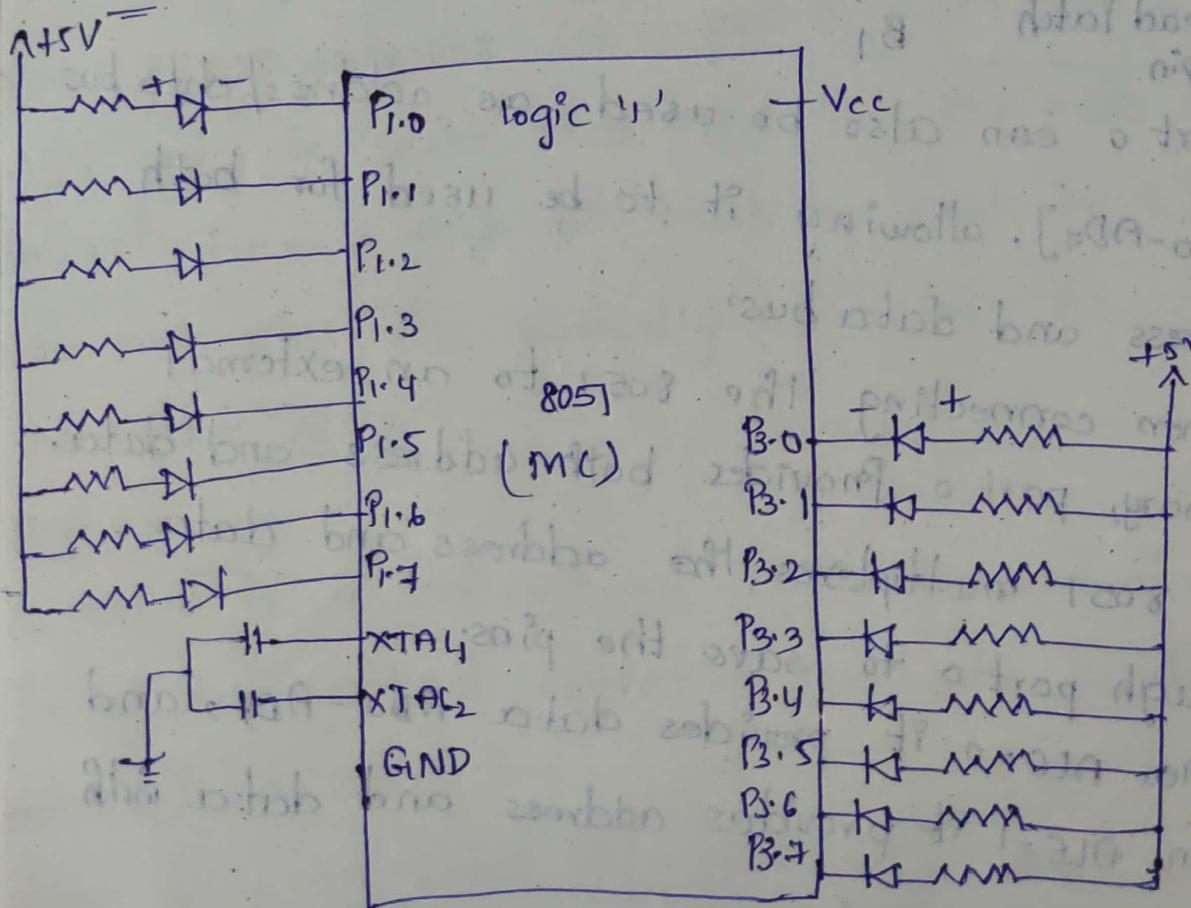 +5V
+ -
P1.0 logic '1' Vcc
P1.1
P1.2
P1.3
P1.4
P1.5
P1.6
P1.7
XTAL1
XTAL2
GND
8051
(MC)
+5V
- +
P3.0
P3.1
P3.2
P3.3
P3.4
P3.5
P3.6
P3.7